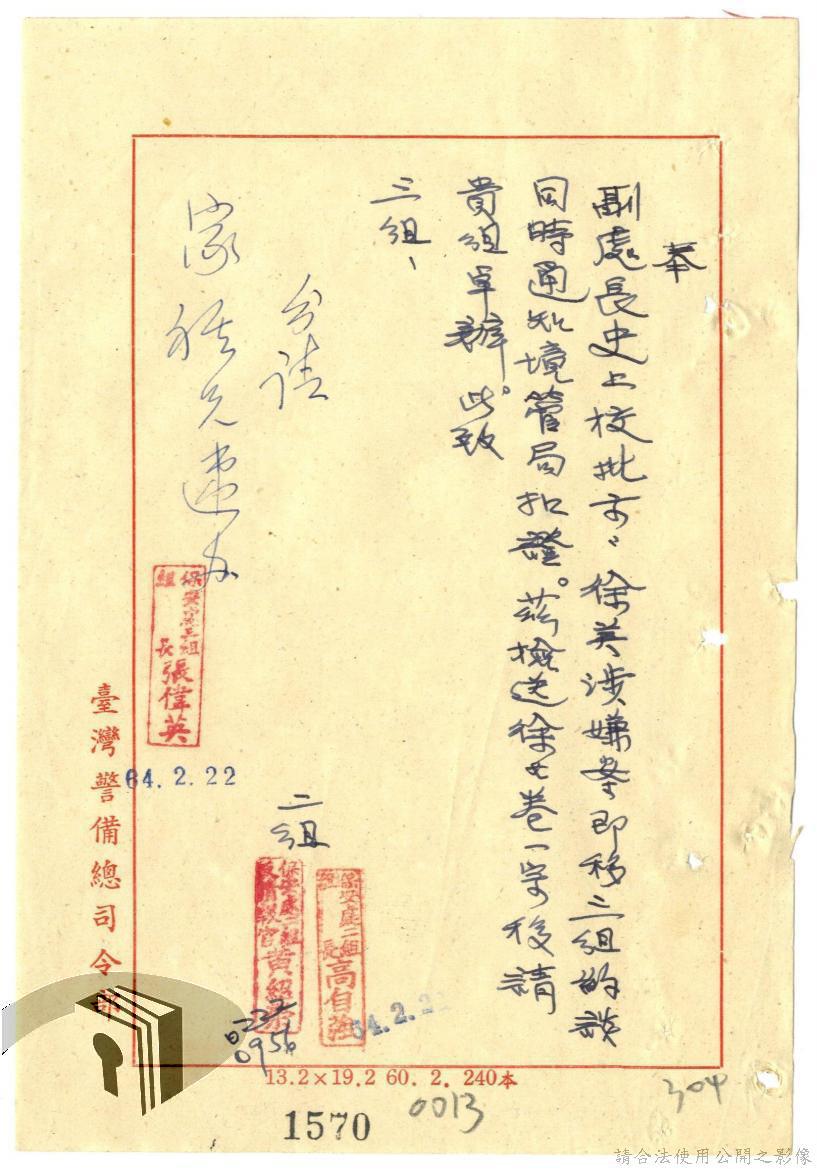 奉
副處長史上校批示：徐英涉嫌案即移三組約談
同時通知境管局扣證。茲檢送徐女卷一宗移請
貴組卓辦。此致
三組、
二組
保安處二組
組長高自強
64.2.22
保安處二組
反情報官黃
0222
0956
家祺兄速办
保安處三組
組長張偉英
64.2.22
臺灣警備總司令部
13.2×19.2 60.2.240本
1570
0013
304
請合法使用公開之影像